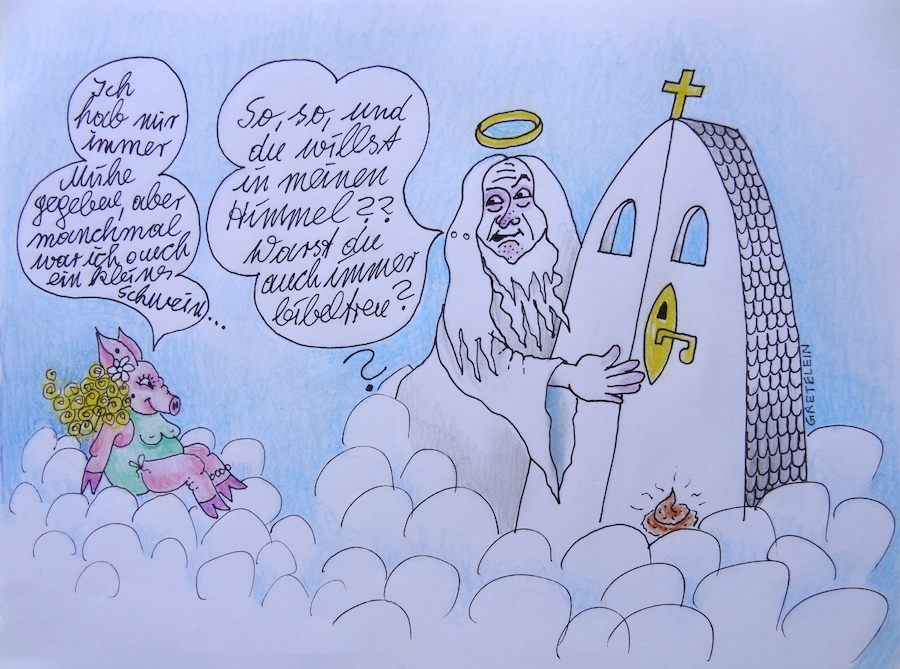 So, so, und
du willst
in meinen
Himmel??
Warst du
auch immer
bibeltreu?
?
Ich
hab mir
immer
Mühe
gegeben, aber
manchmal
war ich auch
ein kleines
Schwein...
GRETELEIN